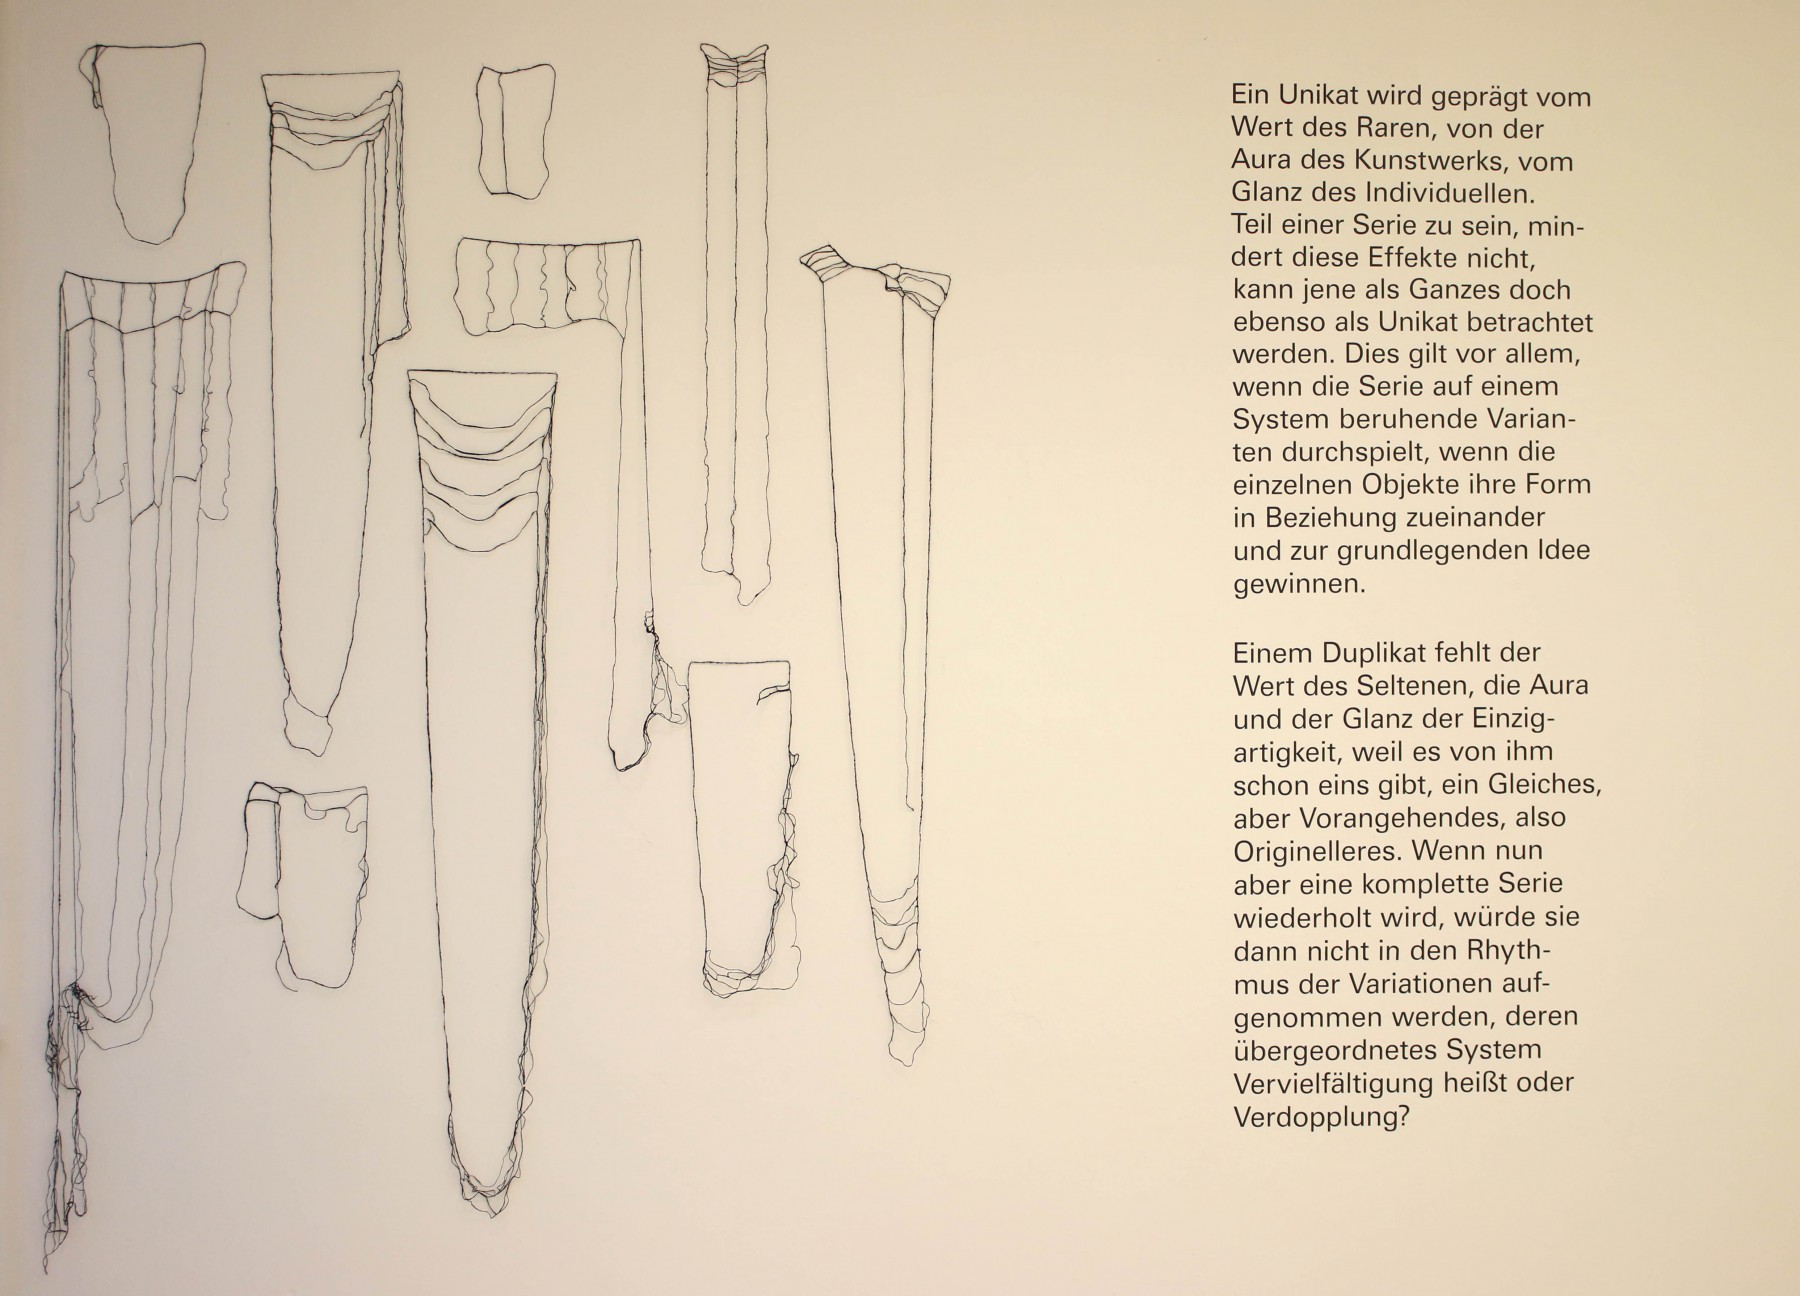 Ein Unikat wird geprägt vom
Wert des Raren, von der
Aura des Kunstwerks, vom
Glanz des Individuellen.
Teil einer Serie zu sein, min-
dert diese Effekte nicht,
kann jene als Ganzes doch
ebenso als Unikat betrachtet
werden. Dies gilt vor allem,
wenn die Serie auf einem
System beruhende Varian-
ten durchspielt, wenn die
einzelnen Objekte ihre Form
in Beziehung zueinander
und zur grundlegenden Idee
gewinnen.
Einem Duplikat fehlt der
Wert des Seltenen, die Aura
und der Glanz der Einzig-
artigkeit, weil es von ihm
schon eins gibt, ein Gleiches,
aber Vorangehendes, also
Originelleres. Wenn nun
aber eine komplette Serie
wiederholt wird, würde sie
dann nicht in den Rhyth-
mus der Variationen auf-
genommen werden, deren
übergeordnetes System
Vervielfältigung heißt oder
Verdopplung?